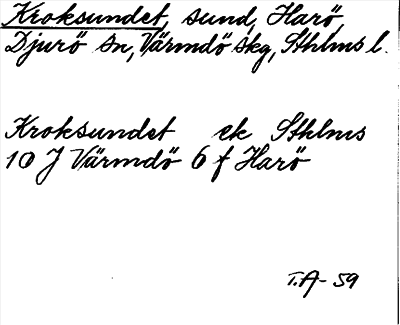 Kroksundet, sund, Harö,
Djurö sn, Värmdö skg, Sthlms l.
Kroksundet ek Sthlms
10 J Värmdö 6 f Harö
T.A-59